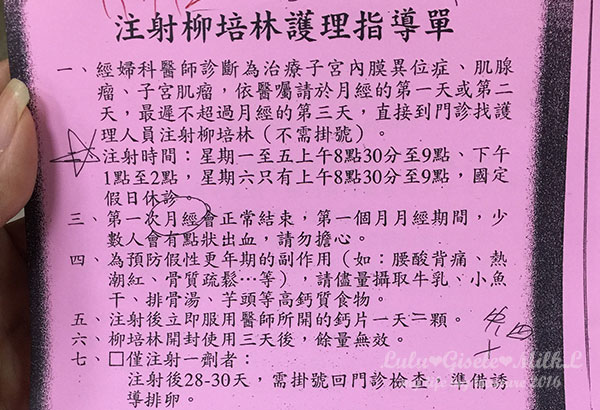 注射柳培林護理指導單
一、經婦科醫師診斷為治療子宮內膜異位症、肌腺
瘤、子宮肌瘤，依醫囑請於月經的第一天或第二
天，最遲不超過月經的第三天，直接到門診找護
理人員注射柳培林（不需掛號）。
注射時間：星期一至五上午8點30分至9點、下午
1點至2點，星期六只有上午8點30分至9點，國定
假日休診。
三、第一次月經會正常結束，第一個月月經期間，少
數人會有點狀出血，請勿擔心。
四、為預防假性更年期的副作用（如：腰酸背痛、熱
潮紅、骨質疏鬆…等），請儘量攝取牛乳、小魚
干、排骨湯、芋頭等高鈣質食物。
五、注射後立即服用醫師所開的鈣片一天二顆。
六、柳培林開封使用三天後，餘量無效。
七、□僅注射一劑者：
Lulu♥Gisele♥Milk.L
2016
注射後28-30天，需掛號回門診檢查，準備誘
導排卵。